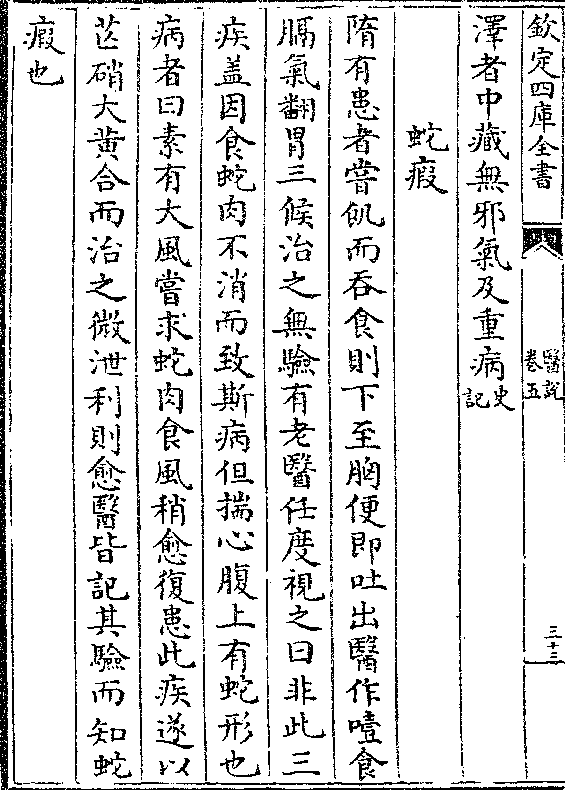 欽定四庫全書
醫說
卷五
三十三
澤者中藏無邪氣及重病史記
蛇瘕
隋有患者嘗飢而吞食則下至胸便即吐出醫作噎食
膈氣翻胃三候治之無驗有老醫任度視之曰非此三
疾盖因食蛇肉不消而致斯病但揣心腹上有蛇形也
病者曰素有大風嘗求蛇肉食風稍愈復患此疾遂以
芒硝大黄合而治之微泄利則愈醫皆記其驗而知蛇
瘕也